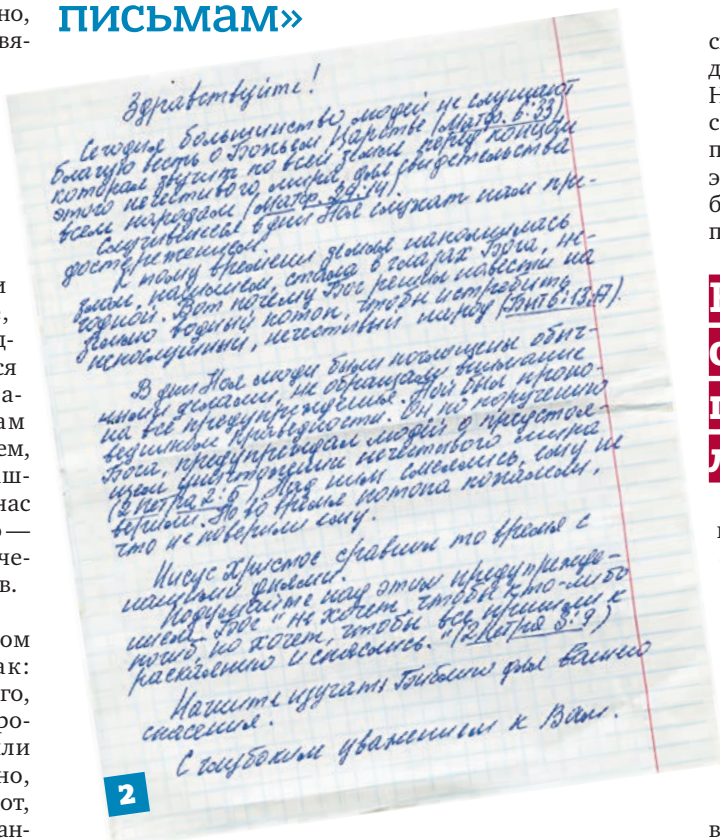 но,
вя-
письмам»
Здравствуйте!
Сегодня большинство людей не слушают
благую весть о Божьем Царстве (Матф. 6:33)
которая звучит по всей земле перед концом
этого нечестивого мира, для свидетельства
всем народам (Матф. 24:14).
Случившееся в дни Ноя служат нам пре-
достережением.
К тому времени земля наполнилась
злом, насилием, стала в глазах Бога, не-
годной. Вот почему Бог решил навести на
землю водный потоп, чтобы истребить
непослушный, нечестивый народ (Быт 6:13,17).
В дни Ноя люди были поглощены обыч-
ными делами, не обращали внимание
на все предупреждения. Ной был пропо-
ведником праведности. Он по поручению
Бога, предупреждал людей о предстоя-
щем уничтожении нечестивого мира
(2 Петра 2:5). Над ним смеялись, ему не
верили. Но во время потопа пожалели,
что не поверили ему.
Иисус Христос сравнил то время с
нашими днями.
Подумайте над этим предупрежде-
нием. Бог "не хочет, чтобы кто-либо
погиб, но хочет, чтобы все пришли к
раскаянию и спаслись." (2 Петра 3:9)
Начните изучать Библию для вашего
спасения.
С глубоким уважением к Вам.
2
и
,
д-
ся
а-
ам
ем,
аш-
нас
о —
че-
в.
ом
ак:
го,
ро-
ли
но,
от,
ан-
с
д
Н
с
п
э
б
п
л
в